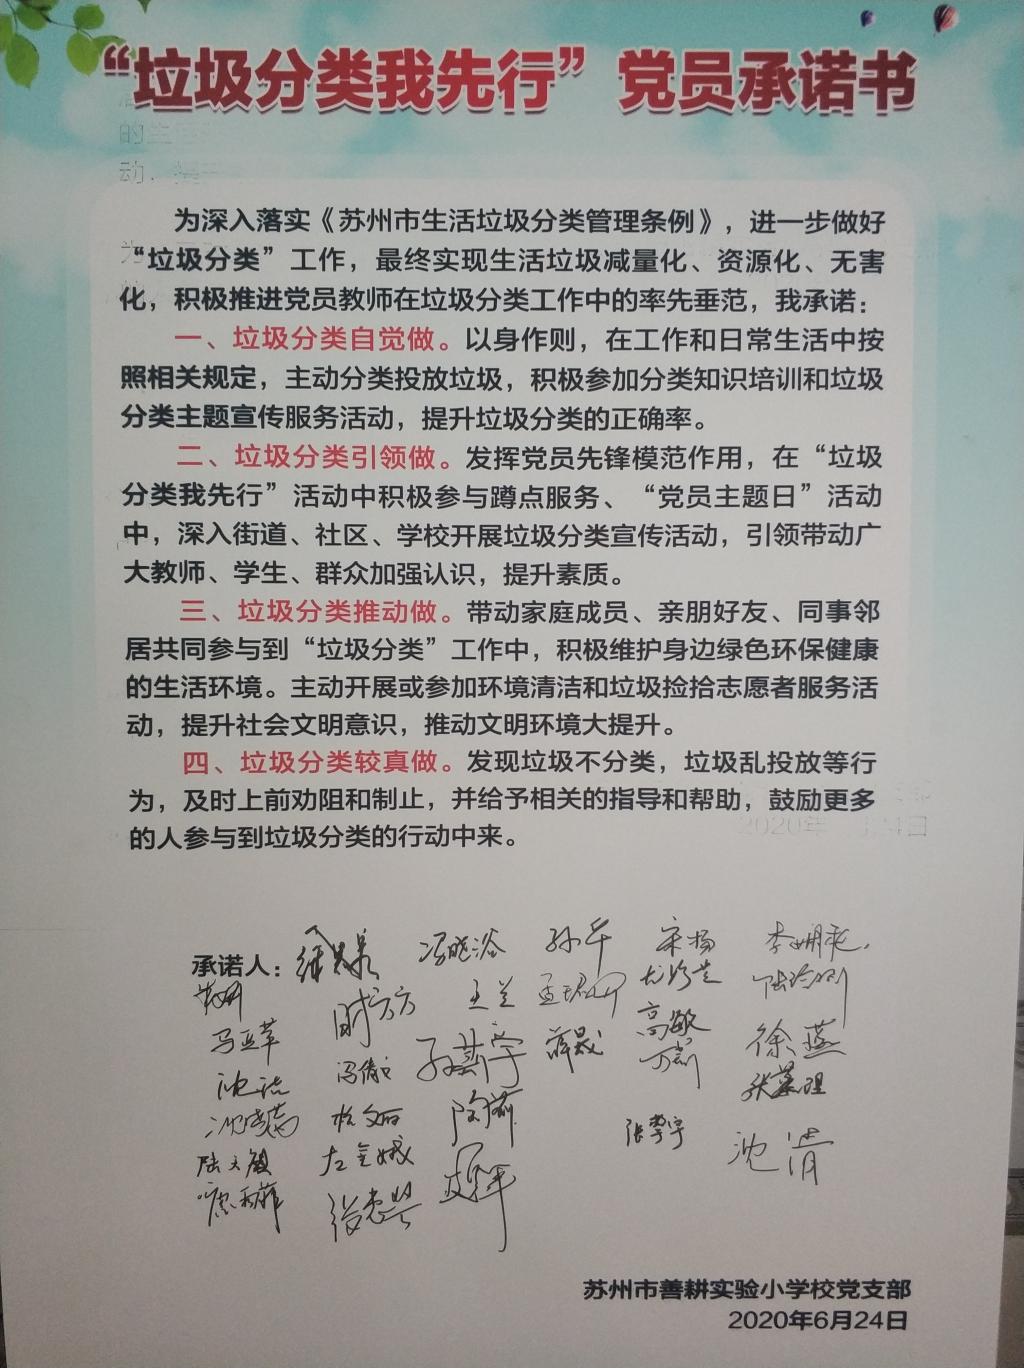 “垃圾分类我先行”党员承诺书
为深入落实《苏州市生活垃圾分类管理条例》，进一步做好
“垃圾分类”工作，最终实现生活垃圾减量化、资源化、无害
化，积极推进党员教师在垃圾分类工作中的率先垂范，我承诺：
一、垃圾分类自觉做。以身作则，在工作和日常生活中按
照相关规定，主动分类投放垃圾，积极参加分类知识培训和垃圾
分类主题宣传服务活动，提升垃圾分类的正确率。
二、垃圾分类引领做。发挥党员先锋模范作用，在“垃圾
分类我先行”活动中积极参与蹲点服务、“党员主题日”活动
中，深入街道、社区、学校开展垃圾分类宣传活动，引领带动广
大教师、学生、群众加强认识，提升素质。
三、垃圾分类推动做。带动家庭成员、亲朋好友、同事邻
居共同参与到“垃圾分类”工作中，积极维护身边绿色环保健康
的生活环境。主动开展或参加环境清洁和垃圾捡拾志愿者服务活
动，提升社会文明意识，推动文明环境大提升。
四、垃圾分类较真做。发现垃圾不分类，垃圾乱投放等行
为，及时上前劝阻和制止，并给予相关的指导和帮助，鼓励更多
的人参与到垃圾分类的行动中来。
承诺人： 冯晓浴 孙平 宋杨
王兰
马亚萍 时方方 薛晟 高敏 徐燕
沈洁
陆文颖 左金娥 张擎宇 沈清
苏州市善耕实验小学校党支部
2020年6月24日